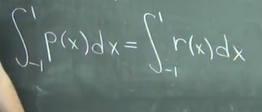 ∫_{-1}^{1} p(x)dx = ∫_{-1}^{1} r(x)dx